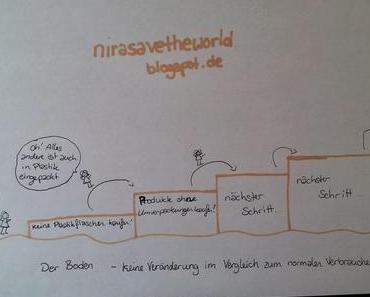 nirasavetheworld
blogspot.de
Oh! Alles
andere ist auch
in Plastik
eingepackt
keine Plastikflaschen kaufen!
Produkte ohne
Umverpackungen kaufen!
nächster
Schritt...
nächster
Schritt...
Der Boden - keine Veränderung im Vergleich zum normalen Verbrauche